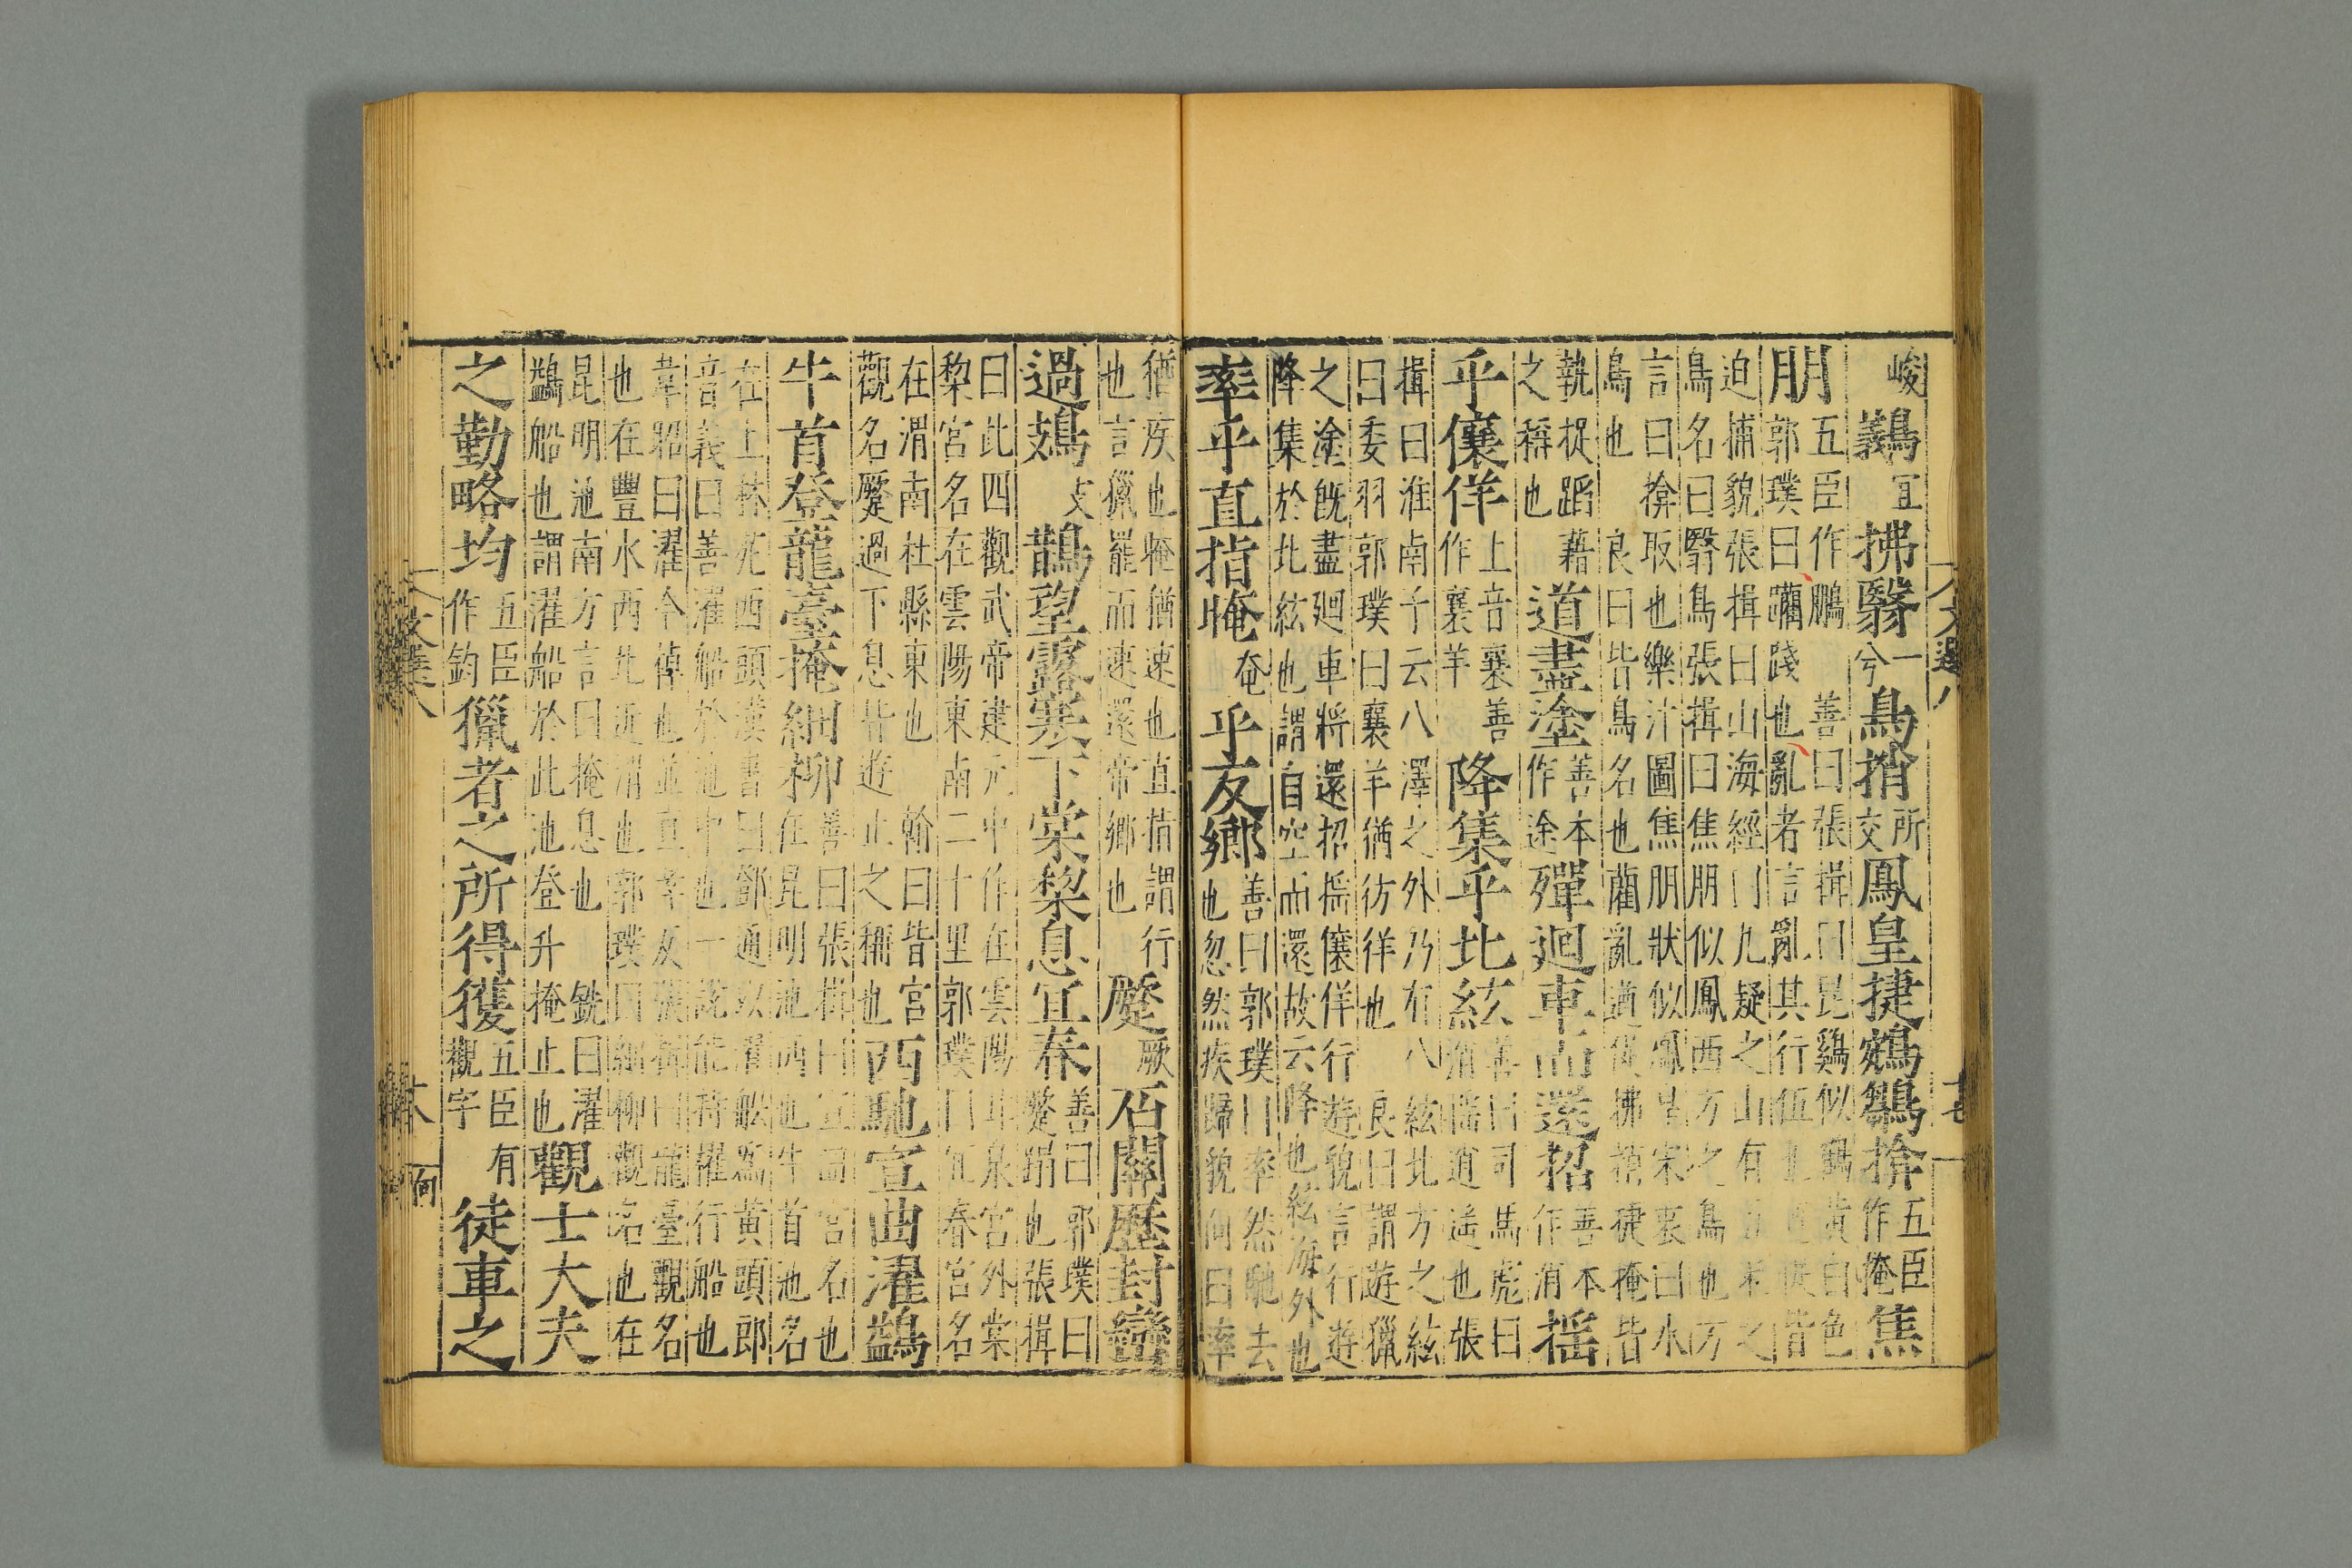 峻鸃宜拂翳一兮鳥捎所交鳳皇捷鵷鶵揜五臣作掩焦
朋五臣作鵬 善曰張揖曰昆雞似鶴黃白色
郭璞曰躪踐也亂者言亂其行伍也遒促皆
迫捕貌張揖曰山海經曰九疑之山有五采之
鳥名曰翳鳥張揖曰焦朋似鳳西方之鳥也方
言曰揜取也樂汁圖焦朋狀似鳳皇宋衷曰水
鳥也 良曰皆鳥名也藺亂遒促拂捎捷掩皆
執捉蹈藉
之稱也 道盡塗善本作途殫迴車而還招善本作消搖
乎儴佯上音襄善作襄羊降集乎北紘善曰司馬彪曰
消搖逍遙也張
揖曰淮南子云八澤之外乃有八紘北方之紘
曰委羽郭璞曰襄羊猶彷徉也 良曰謂遊獵
之塗旣盡迴車將還招搖儴佯行遊貌言行遊
降集於北紘也謂自空而還故云降也紘海外也
率乎直指晻奄乎反鄉善曰郭璞曰率然馳去
也忽然疾歸貌向曰率
猶疾也晻猶速也直指謂行
也言獵罷而速還帝鄉也 蹷厥石關歷封巒
過鳷支鵲望露寒下棠棃息宜春善曰郭璞曰
蹷蹋也張揖
曰此四觀武帝建元中作在雲陽甘泉宮外棠
棃宮名在雲陽東南二十里郭璞曰宜春宮名
在渭南杜縣東也 翰曰皆宮
觀名蹷過下息皆遊止之稱也 西馳宣曲濯鷁
牛首登龍臺掩細柳善曰張揖曰宣曲宮名也
在昆明池西也牛首池名
在上林苑西頭漢書曰鄧通以濯船爲黃頭郎
音義曰善濯船於池中也一說能持擢行船也
韋昭曰濯今棹也並直孝反張揖曰龍臺觀名
也在豐水西北近渭也郭璞曰細柳觀名也在
昆明池南方言曰掩息也 銑曰濯
鷁船也謂濯船於此池登升掩止也 觀士大夫
之勤略均五臣作鈞獵者之所得獲五臣有觀字徒車之
文選八